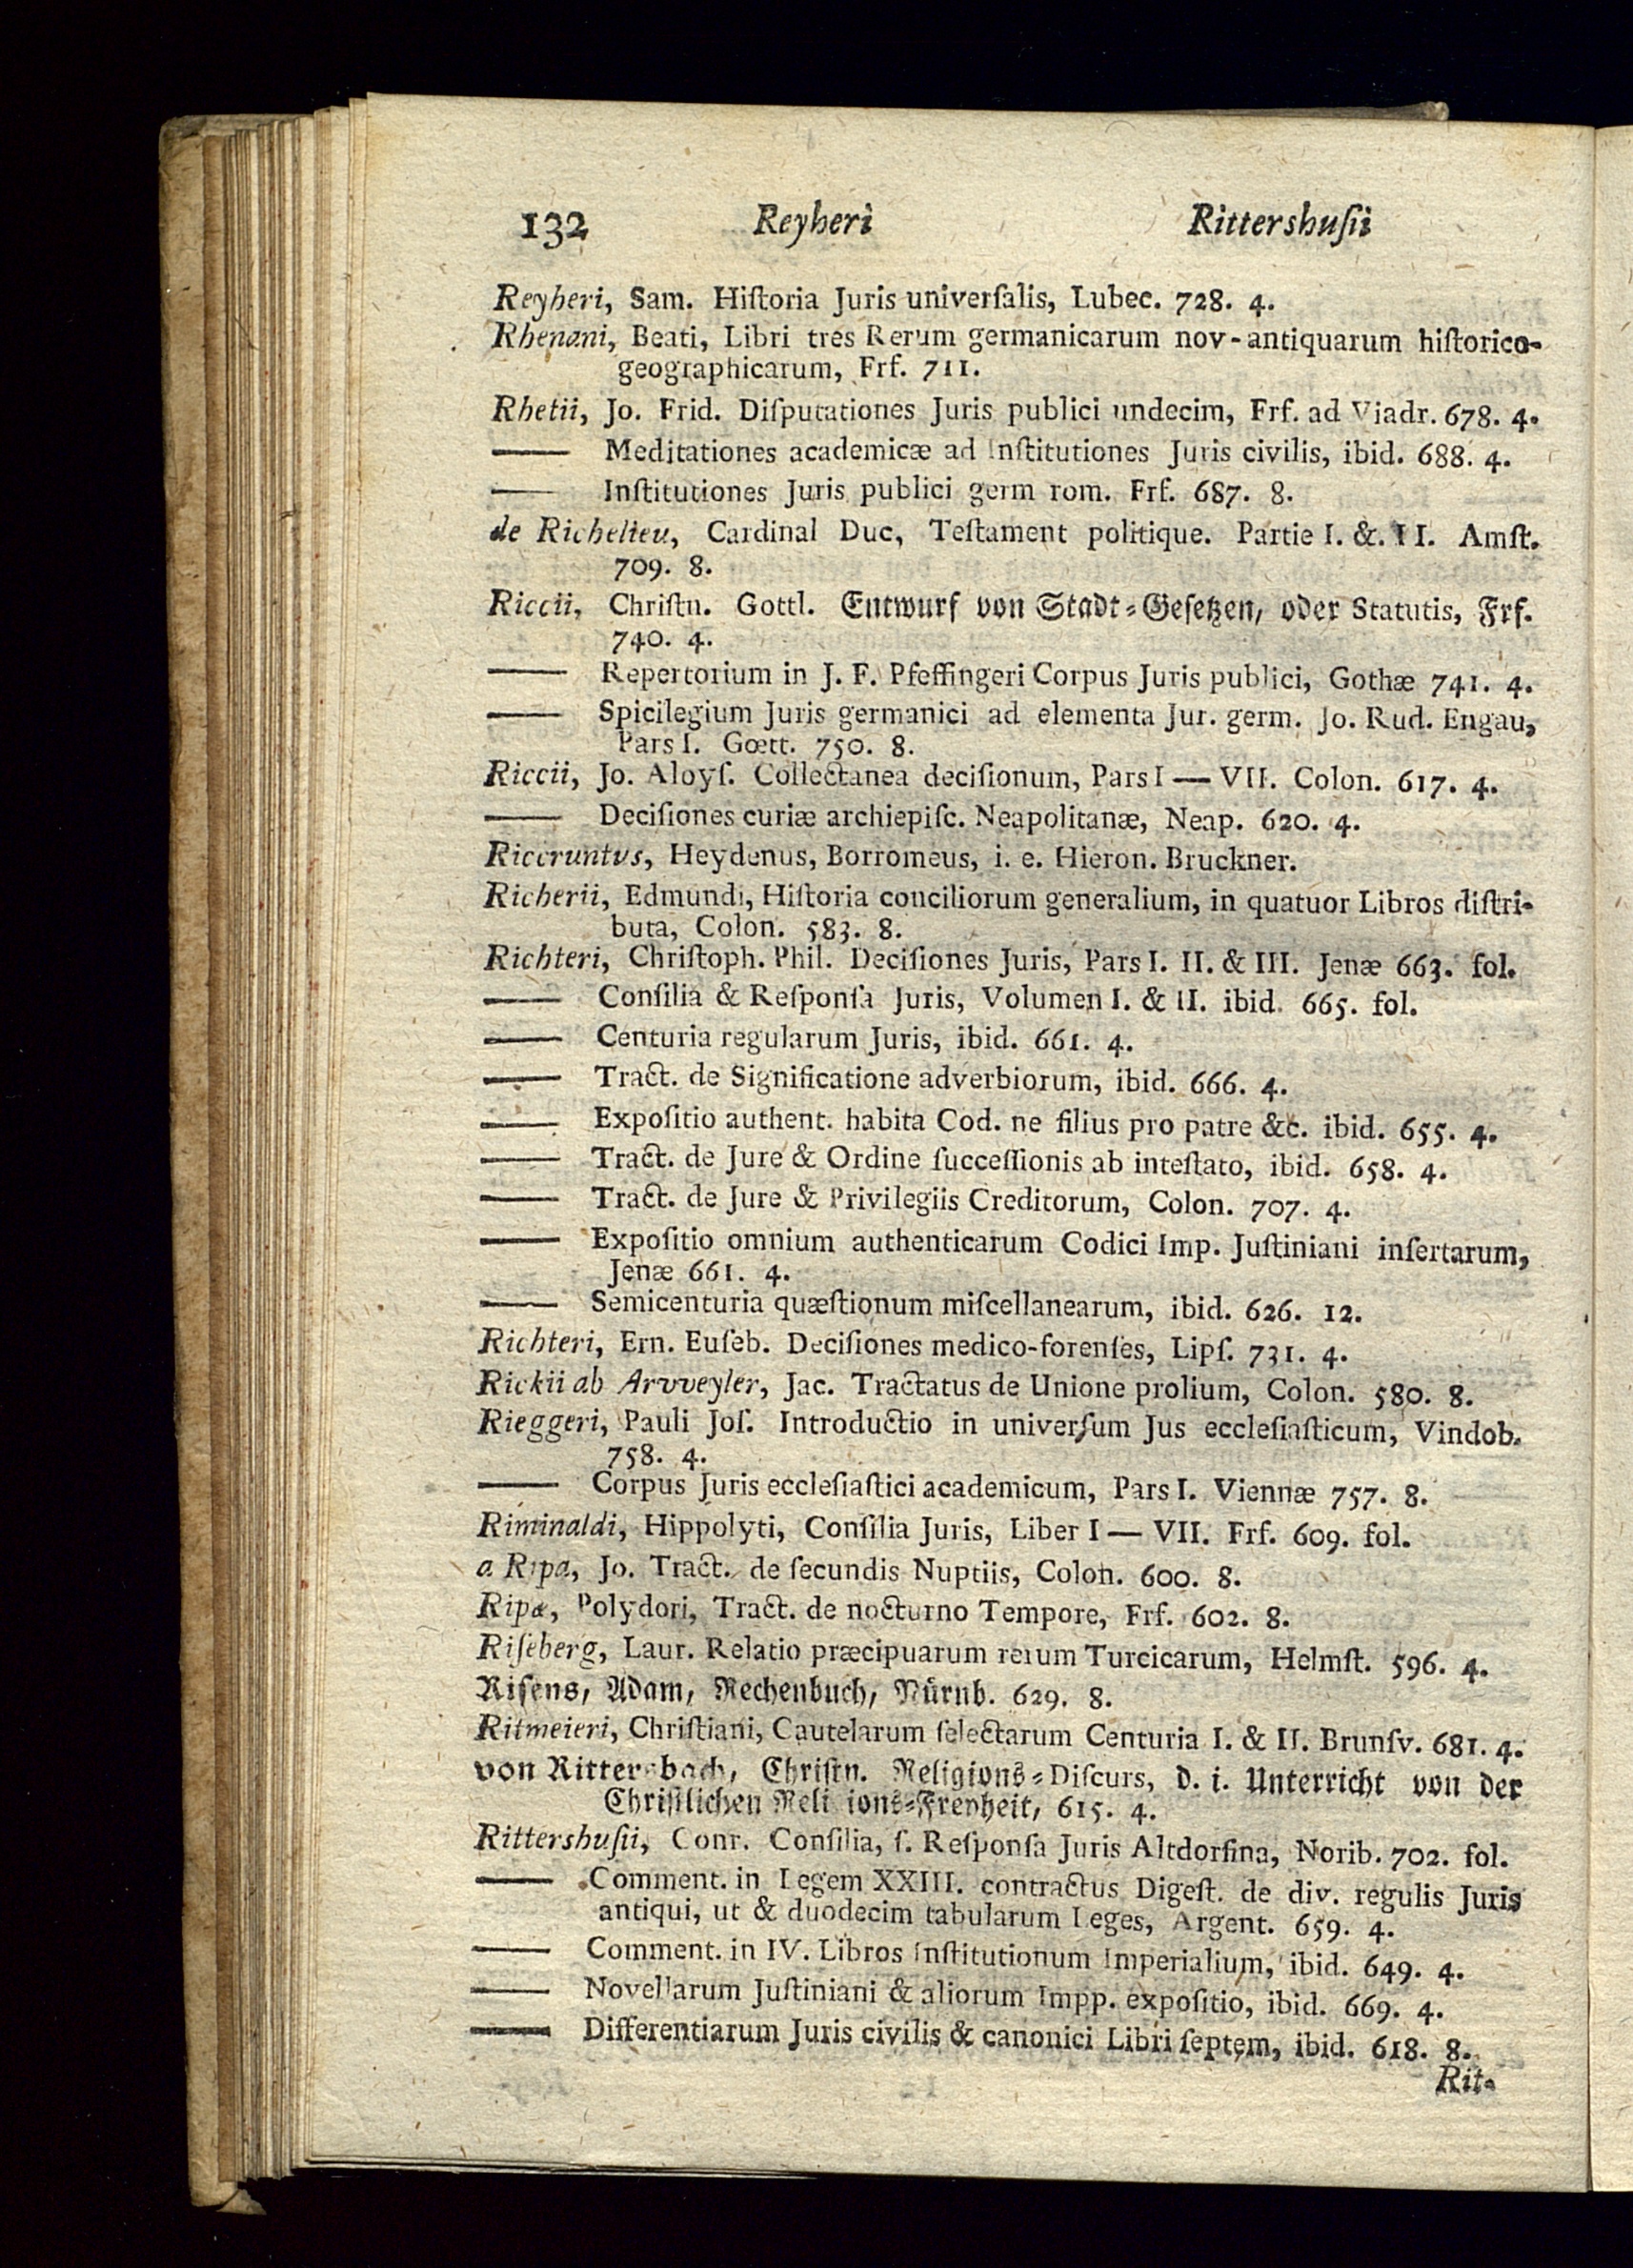 132 Reyheri Rittershuſii
Reyheri, Sam. Hiſtoria Juris univerſalis, Lubec. 728. 4.
Rhenani, Beati, Libri tres Rerum germanicarum nov-antiquarum hiſtorico-
geographicarum, Frf. 711.
Rhetii, Jo. Frid. Diſputationes Juris publici undecim, Frf. ad Viadr. 678. 4.
—— Meditationes academicæ ad Inſtitutiones Juris civilis, ibid. 688. 4.
—— Inſtitutiones Juris publici germ rom. Frf. 687. 8.
de Richelieu, Cardinal Duc, Teſtament politique. Partie I. &. II. Amſt.
709. 8.
Riccii, Chriſtn. Gottl. Entwurf von Stadt-Geſetzen, oder Statutis, Frf.
740. 4.
—— Repertorium in J. F. Pfeffingeri Corpus Juris publici, Gothæ 741. 4.
—— Spicilegium Juris germanici ad elementa Jur. germ. Jo. Rud. Engau,
Pars I. Gœtt. 750. 8.
Riccii, Jo. Aloyſ. Collectanea deciſionum, Pars I — VII. Colon. 617. 4.
—— Deciſiones curiæ archiepiſc. Neapolitanæ, Neap. 620. 4.
Riccruntus, Heydenus, Borromeus, i. e. Hieron. Bruckner.
Richerii, Edmundi, Hiſtoria conciliorum generalium, in quatuor Libros diſtri-
buta, Colon. 583. 8.
Richteri, Chriſtoph. Phil. Deciſiones Juris, Pars I. II. & III. Jenæ 663. fol.
—— Conſilia & Reſponſa Juris, Volumen I. & II. ibid. 665. fol.
—— Centuria regularum Juris, ibid. 661. 4.
—— Tract. de Significatione adverbiorum, ibid. 666. 4.
—— Expoſitio authent. habita Cod. ne filius pro patre &c. ibid. 655. 4.
—— Tract. de Jure & Ordine ſucceſſionis ab inteſtato, ibid. 658. 4.
—— Tract. de Jure & Privilegiis Creditorum, Colon. 707. 4.
—— Expoſitio omnium authenticarum Codici Imp. Juſtiniani inſertarum,
Jenæ 661. 4.
—— Semicenturia quæſtionum miſcellanearum, ibid. 626. 12.
Richteri, Ern. Euſeb. Deciſiones medico-forenſes, Lipſ. 731. 4.
Rickii ab Arvveyler, Jac. Tractatus de Unione prolium, Colon. 580. 8.
Rieggeri, Pauli Joſ. Introductio in univerſum Jus eccleſiaſticum, Vindob.
758. 4.
—— Corpus Juris eccleſiaſtici academicum, Pars I. Viennæ 757. 8.
Riminaldi, Hippolyti, Conſilia Juris, Liber I — VII. Frf. 609. fol.
a Ripa, Jo. Tract. de ſecundis Nuptiis, Colon. 600. 8.
Ripæ, Polydori, Tract. de nocturno Tempore, Frf. 602. 8.
Riſeberg, Laur. Relatio præcipuarum rerum Turcicarum, Helmſt. 596. 4.
Riſens, Adam, Rechenbuch, Nürnb. 629. 8.
Ritmeieri, Chriſtiani, Cautelarum ſelectarum Centuria I. & II. Brunſv. 681. 4.
von Rittersbach, Chriſtn. Religions-Diſcurs, d. i. Unterricht von der
Chriſtlichen Religions-Freyheit, 615. 4.
Rittershuſii, Conr. Conſilia, ſ. Reſponſa Juris Altdorfina, Norib. 702. fol.
—— Comment. in Legem XXIII. contractus Digeſt. de div. regulis Juris
antiqui, ut & duodecim tabularum Leges, Argent. 659. 4.
—— Comment. in IV. Libros Inſtitutionum Imperialium, ibid. 649. 4.
—— Novellarum Juſtiniani & aliorum Impp. expoſitio, ibid. 669. 4.
—— Differentiarum Juris civilis & canonici Libri ſeptem, ibid. 618. 8.
Rit-